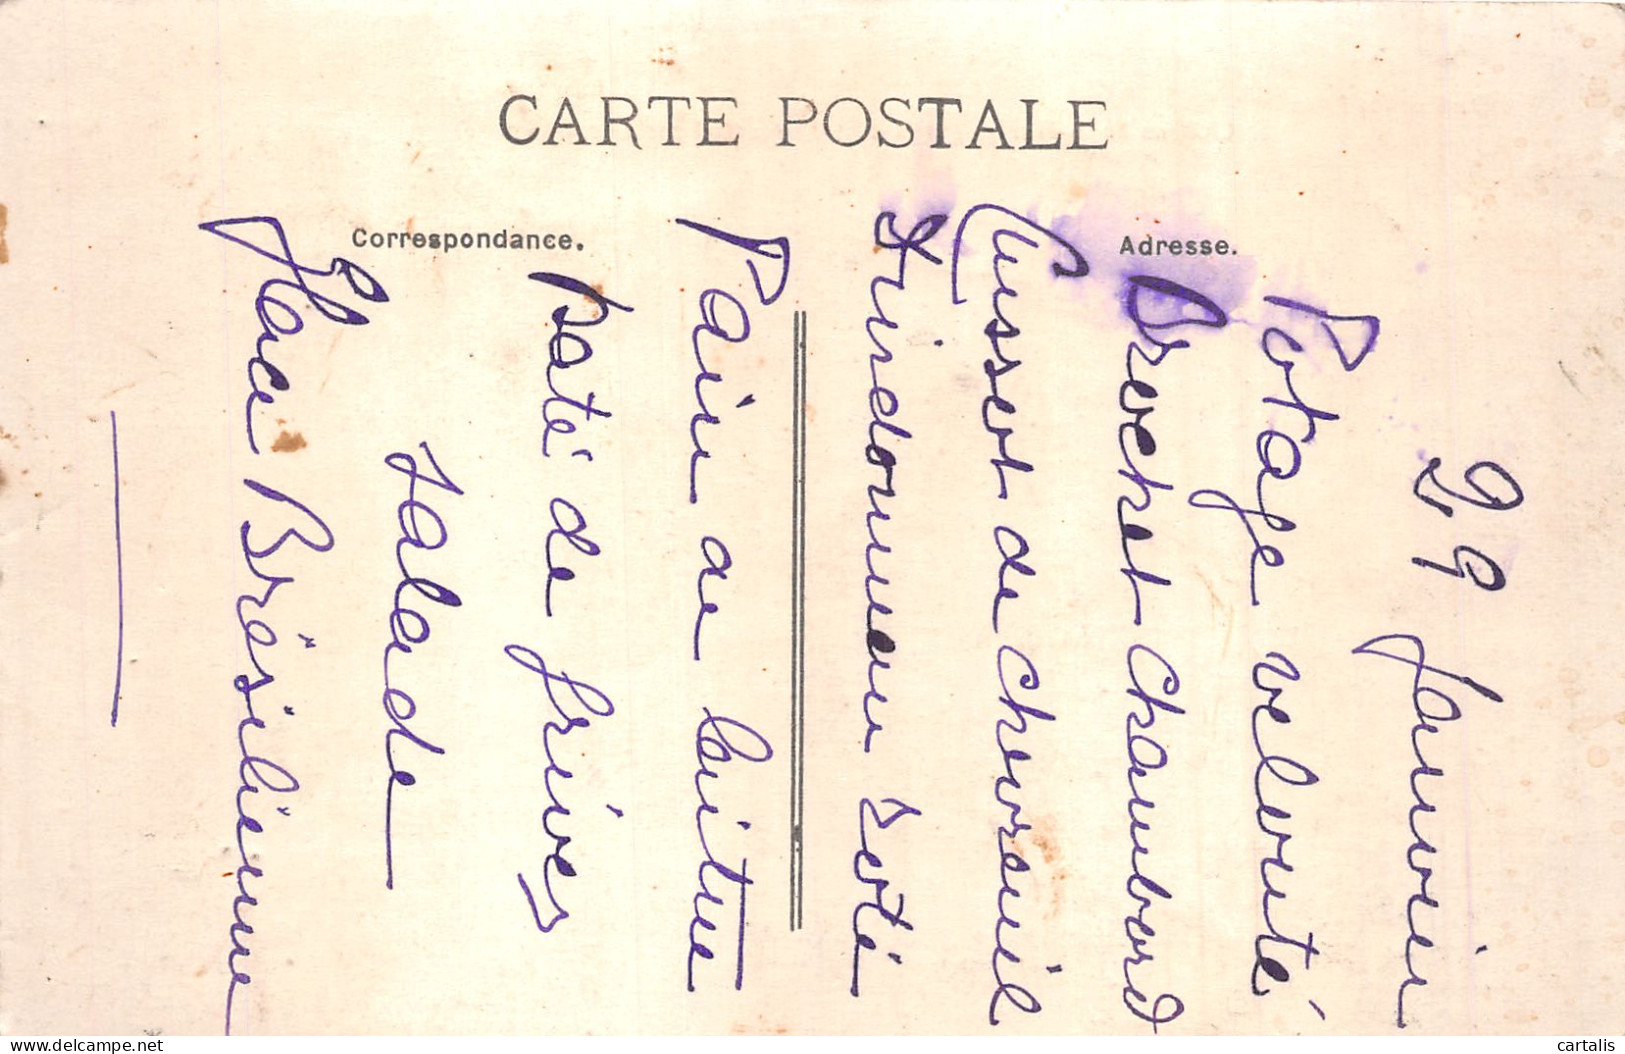 CARTE POSTALE
Correspondance.
Adresse.
29 Janvier
Potage velouté
Brochet Chambord
Cuissot de Chevreuil
Dindonneau roti
Pain de laitue
Paté de grives
Salade
Glace Brésilienne
cartalis